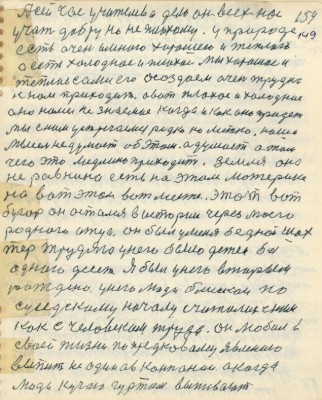 А сейчас учителево дело он всех нас 159
учат добру но не плохому. у природе 149
есть очен много хорошего и теплого
а есть холодное и плохое мы хорошое и
теплое сами его создаем очен трудно
к нам приходит. а вот плохое и холодное
оно нами не знаемое когда и как оно придет
мы с ним устречаемся редко но метко. наша
мысля не думает об этом. а думает о том
чего это медлено приходит. земля она
не равнина есть на этом материка
на вот этом вот месте. этот вот
бугор он остался в истории через моего
родного отца. он был у меня бедной шах
тер трудяга у него было детей
одного десет. Я был у него впервым
рождено. у него люди близкия по
суседскому началу считалися с ним
как с человеком труда. он любил в
своей жизни по предковому явлению
выпит не один а в компании. а когда
люди кучаю гуртом выпивают